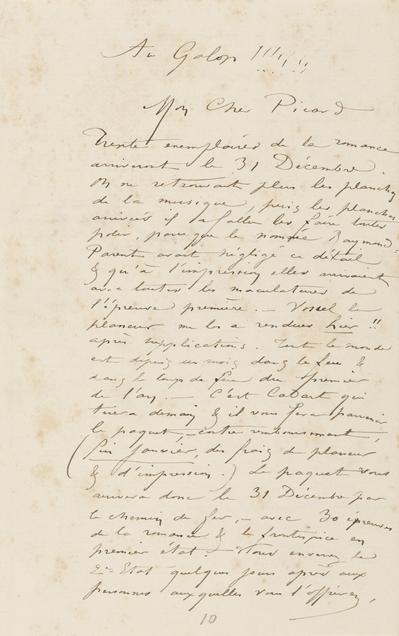 Au Galop !!!!!!
Mon Cher Picard
Trente exemplaires de la romance
arriveront le 31 Décembre.
On ne retrouvait plus les planches
de la musique, puis les planches
arrivées il a fallu les faire toutes
polir, parceque le nommé Raymond
Parent avait négligé ce détail
& qu'à l'impression elles arrivaient
avec toutes les maculatures de
l'épreuve première. — Vossel le
planeur me les a rendues hier "
après supplications. Tout le monde
est depuis un mois dans le feu &
dans le coup de feu du premier
de l'an. — C'est Cadart qui
tirera demain & il vous fera parvenir
le paquet contre remboursement,
(fin Janvier, des frais de planeur
& d'impression.) Le paquet vous
arrivera donc le 31 Décembre par
le chemin de fer, — avec 30 épreuves
de la romance & le frontispice en
premier état. — Vous enverrez le
2me Etat quelques jours après aux
personnes auxquelles vous l'offrirez,
10